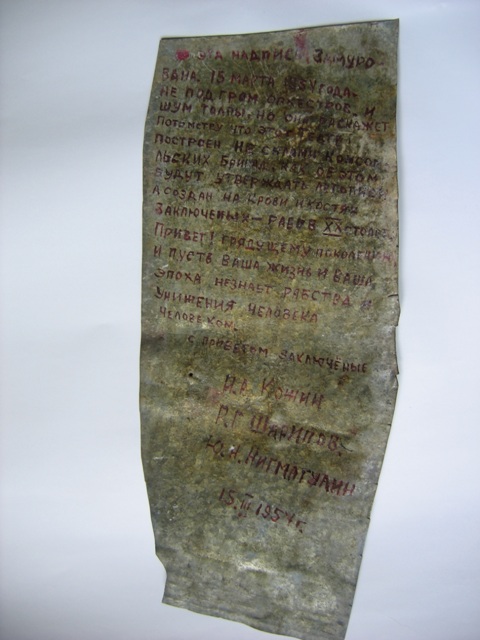 ЭТА НАДПИСЬ ЗАМУРО-
ВАНА 15 МАРТА 1954 ГОДА.
НЕ ПОД ГРОМ ОРКЕСТРОВ И
ШУМ ТОЛПЫ, НО ОНА РАССКАЖЕТ
ПОТОМСТВУ ЧТО ЭТОТ ТЕАТР
ПОСТРОЕН НЕ СИЛАМИ КОМСОМО-
ЛЬСКИХ БРИГАД КАК ОБ ЭТОМ
БУДУТ УТВЕРЖДАТЬ ЛЕТОПИСИ
А СОЗДАН НА КРОВИ И КОСТЯХ
ЗАКЛЮЧЕНЫХ – РАБОВ XX СТОЛЕТ
ПРИВЕТ! ГРЯДУЩЕМУ ПОКОЛЕНИЮ
И ПУСТЬ ВАША ЖИЗНЬ И ВАША
ЭПОХА НЕЗНАЕТ РАБСТВА И
УНИЖЕНИЯ ЧЕЛОВЕКА
ЧЕЛОВЕКОМ.
С ПРИВЕТОМ ЗАКЛЮЧЁНЫЕ
КОЖИН
Р.Г ШАРИПОВ.
Ю.Н. НИГМАТУЛИН
15.III 1954 г.